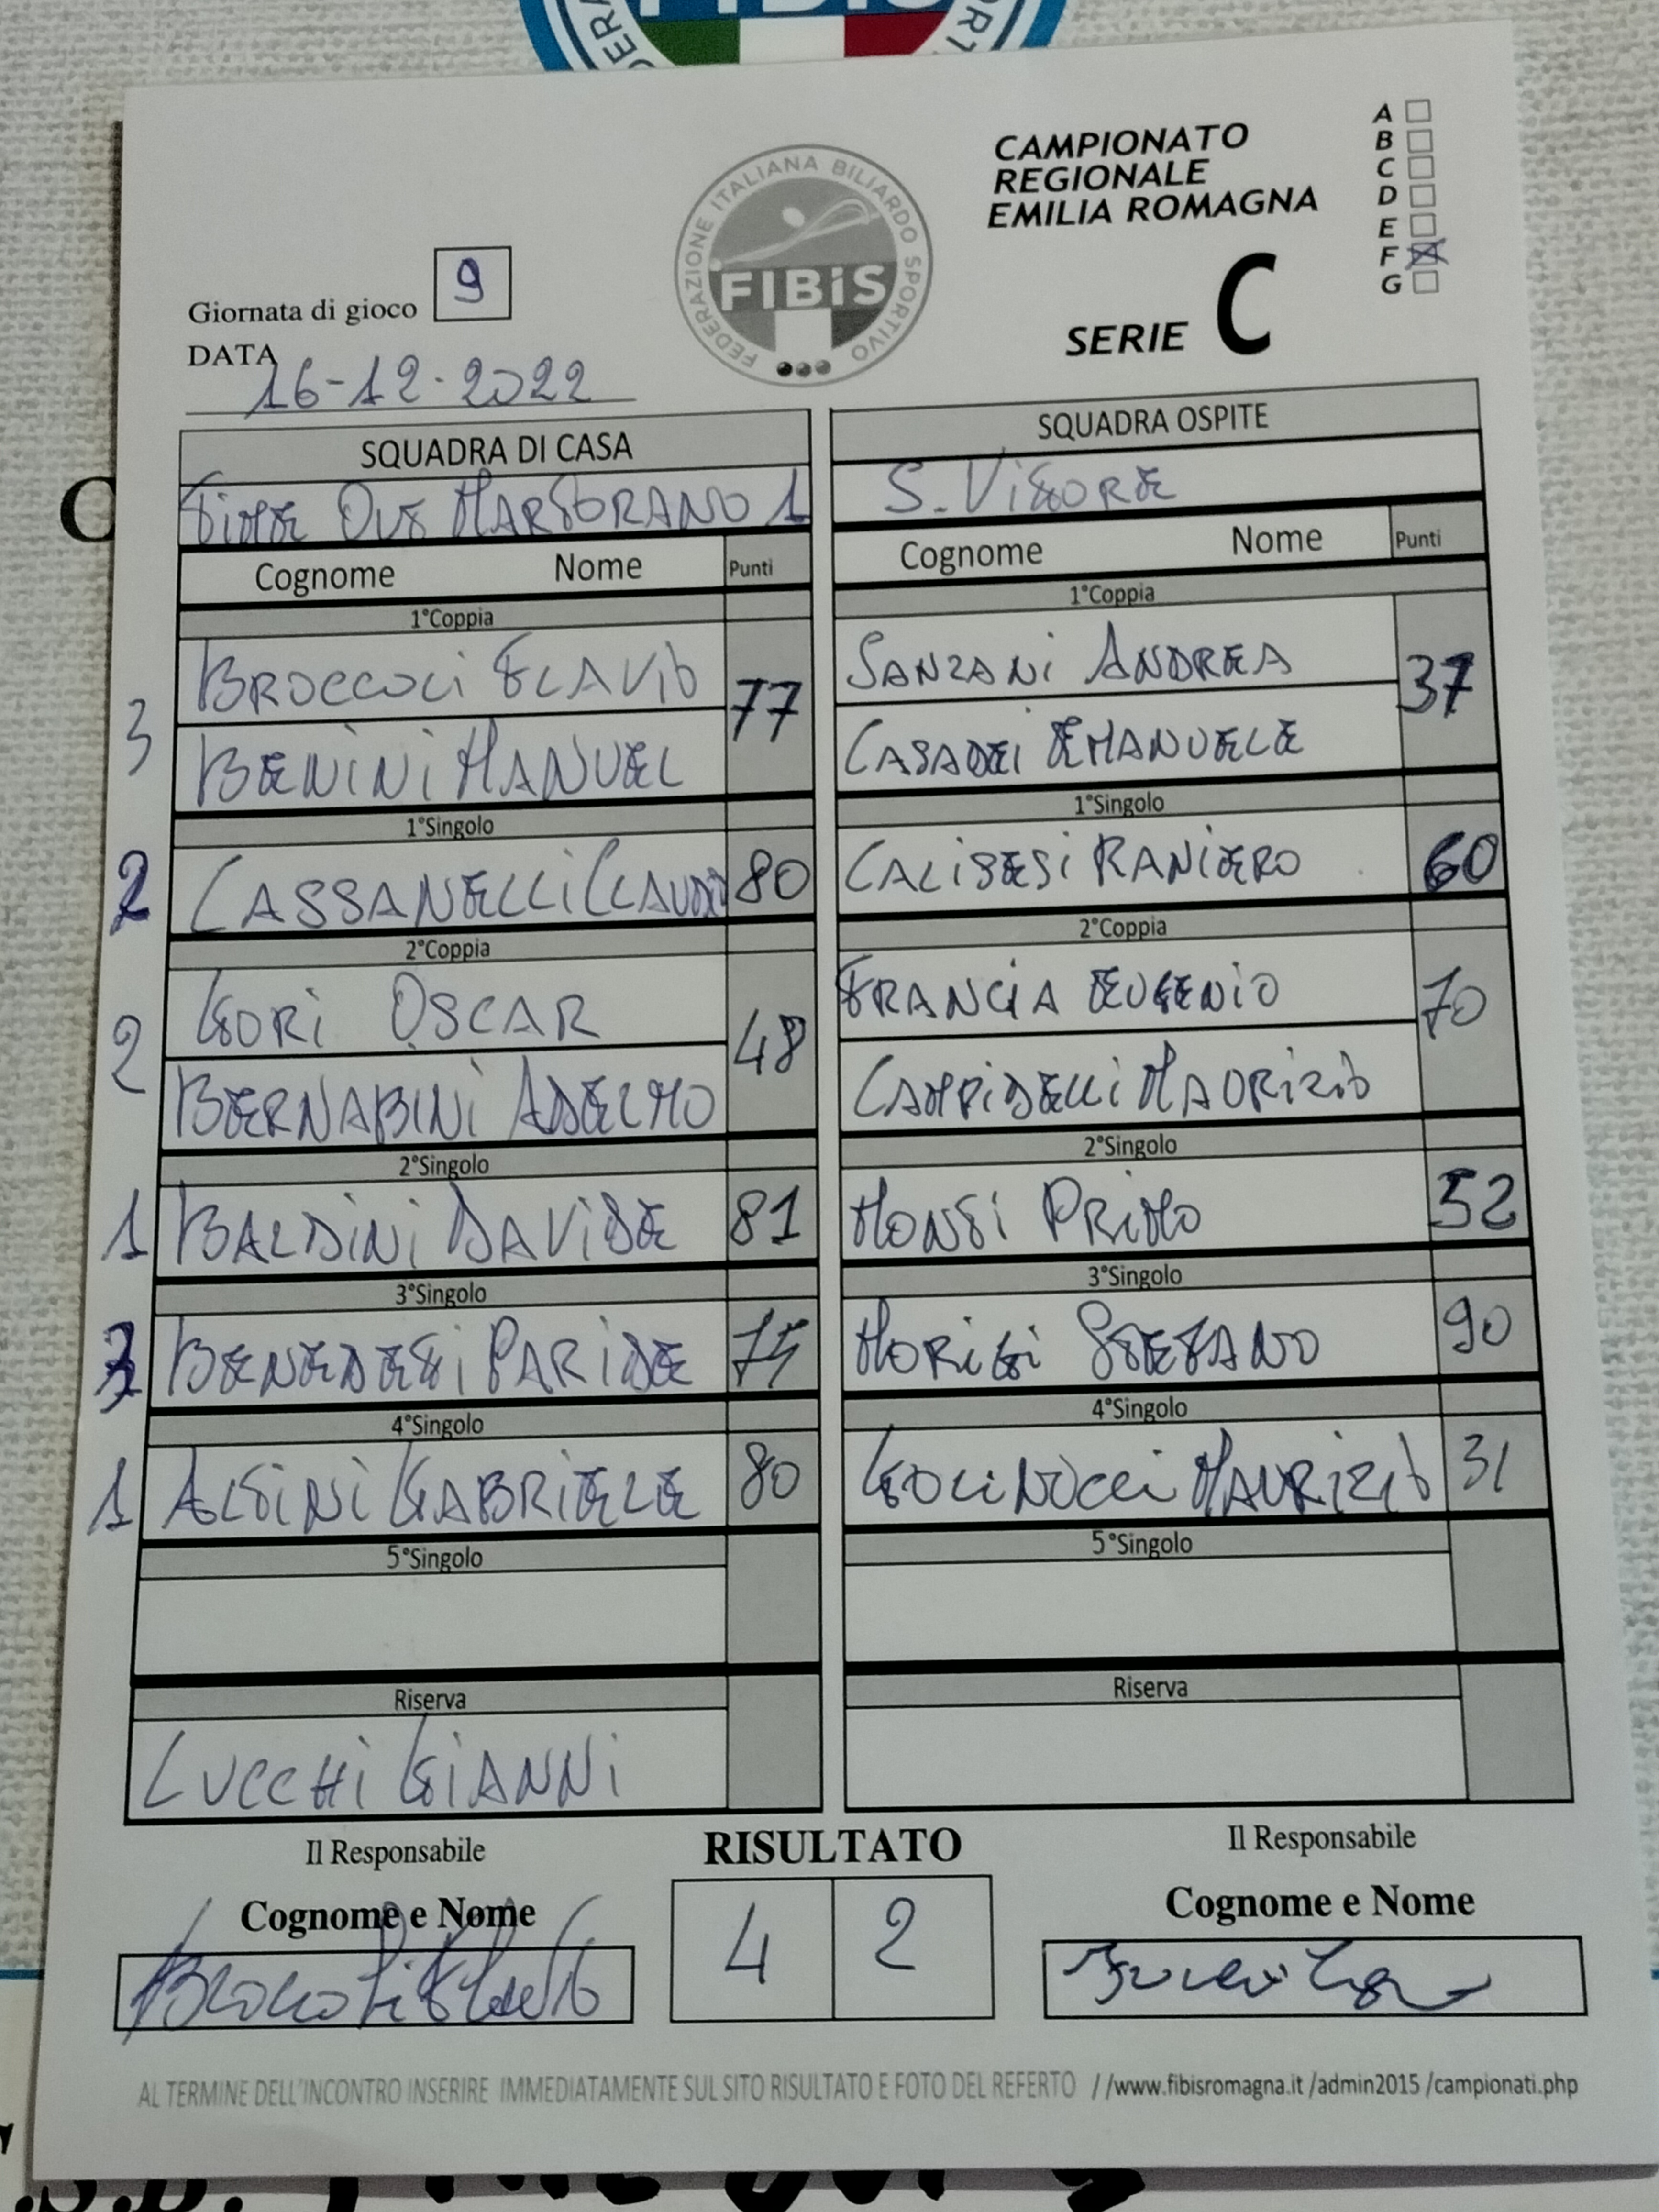 FIBIS
CAMPIONATO
REGIONALE
EMILIA ROMAGNA
SERIE C
A
B
C
D
E
F
G
FEDERAZIONE ITALIANA BILIARDO SPORTIVO
FIBiS
Giornata di gioco 9
DATA
16-12-2022
SQUADRA DI CASA
SQUADRA OSPITE
TIME OUT MARTORANO 1
S. VITTORE
Cognome Nome Punti
Cognome Nome Punti
1°Coppia
1°Coppia
3
BROCCOLI FLAVIO
77
SANZANI ANDREA
37
BENINI MANUEL
CASADEI EMANUELE
1°Singolo
1°Singolo
2 CASSANELLI CLAUDIO 80
CALISESI RANIERO 60
2°Coppia
2°Coppia
2
GORI OSCAR
48
FRANCIA EUGENIO
70
BERNABINI ADELMO
CAMPIDELLI MAURIZIO
2°Singolo
2°Singolo
1 BALDINI DAVIDE 81
MONTI PRIMO 52
3°Singolo
3°Singolo
3 BENEDETTI PARIDE 75
MORIGI STEFANO 90
4°Singolo
4°Singolo
1 ALFINI GABRIELE 80
GOLINUCCI MAURIZIO 31
5°Singolo
5°Singolo
Riserva
Riserva
LUCCHI GIANNI
Il Responsabile
RISULTATO
Il Responsabile
Cognome e Nome
4 2
Cognome e Nome
AL TERMINE DELL'INCONTRO INSERIRE IMMEDIATAMENTE SUL SITO RISULTATO E FOTO DEL REFERTO //www.fibisromagna.it /admin2015 /campionati.php